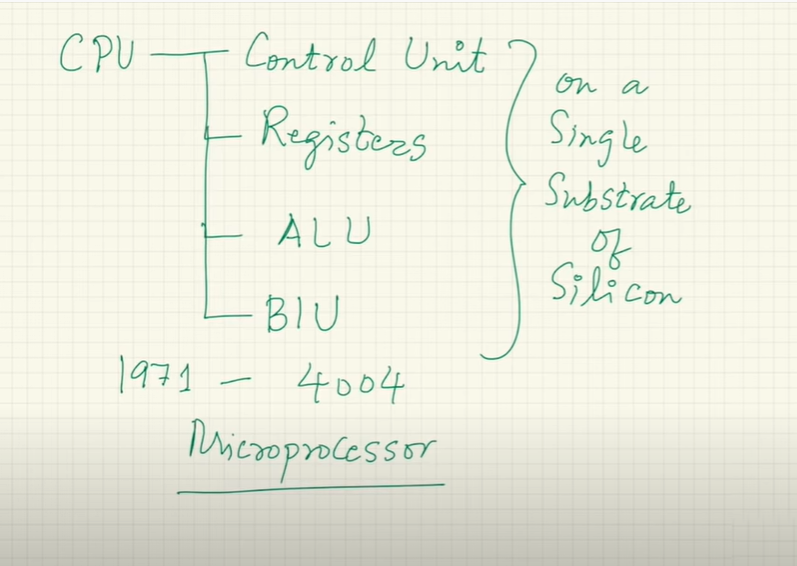 CPU
Control Unit
Registers
ALU
BIU
on a
Single
Substrate
of
Silicon
1971 — 4004
Microprocessor